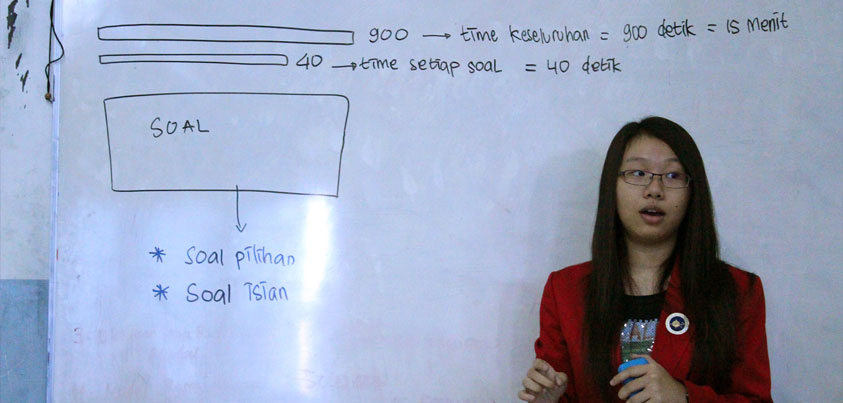 900 → time keseluruhan = 900 detik = 15 menit
40 → time setiap soal = 40 detik
SOAL
* soal pilihan
* soal isian